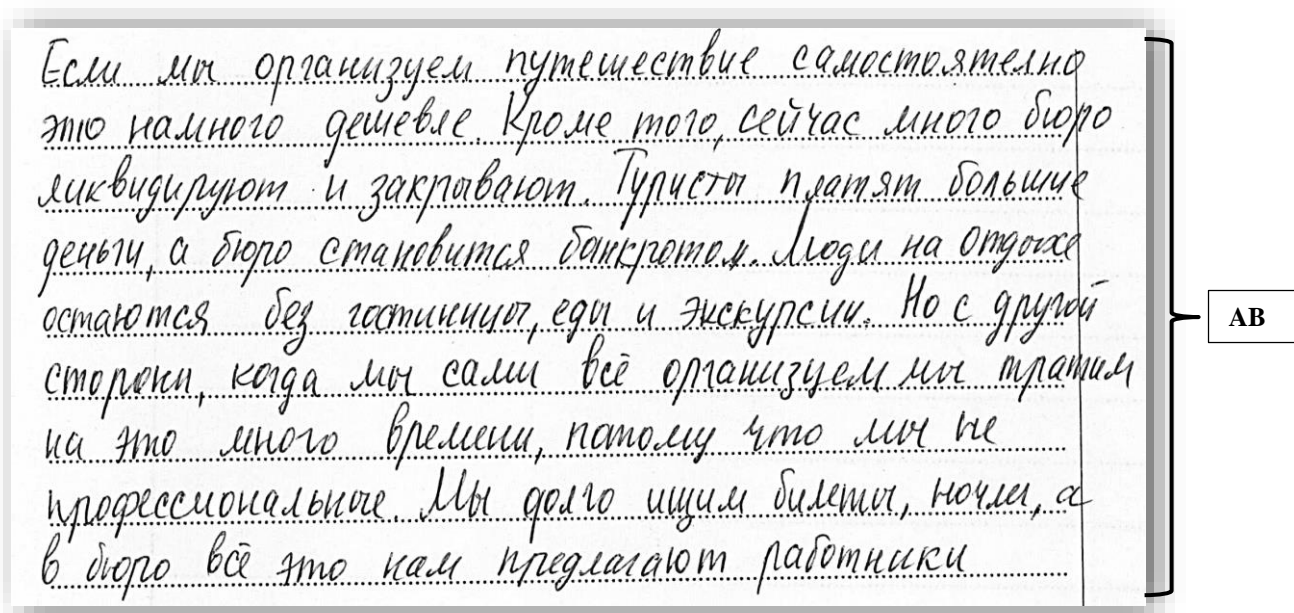 Если мы организуем путешествие самостоятелно
это намного дешевле. Кроме того, сейчас много бюро
ликвидируют и закрывают. Туристы платят большие
деньги, а бюро становится банкротом. Люди на отдыхе
остаются без гостиницы, еды и экскурсии. Но с другой
стороны, когда мы сами всё организуем мы тратим
на это много времени, потому что мы не
профессиональные. Мы долго ищим билеты, ночлег, а
в бюро всё это нам предлагают работники
АВ